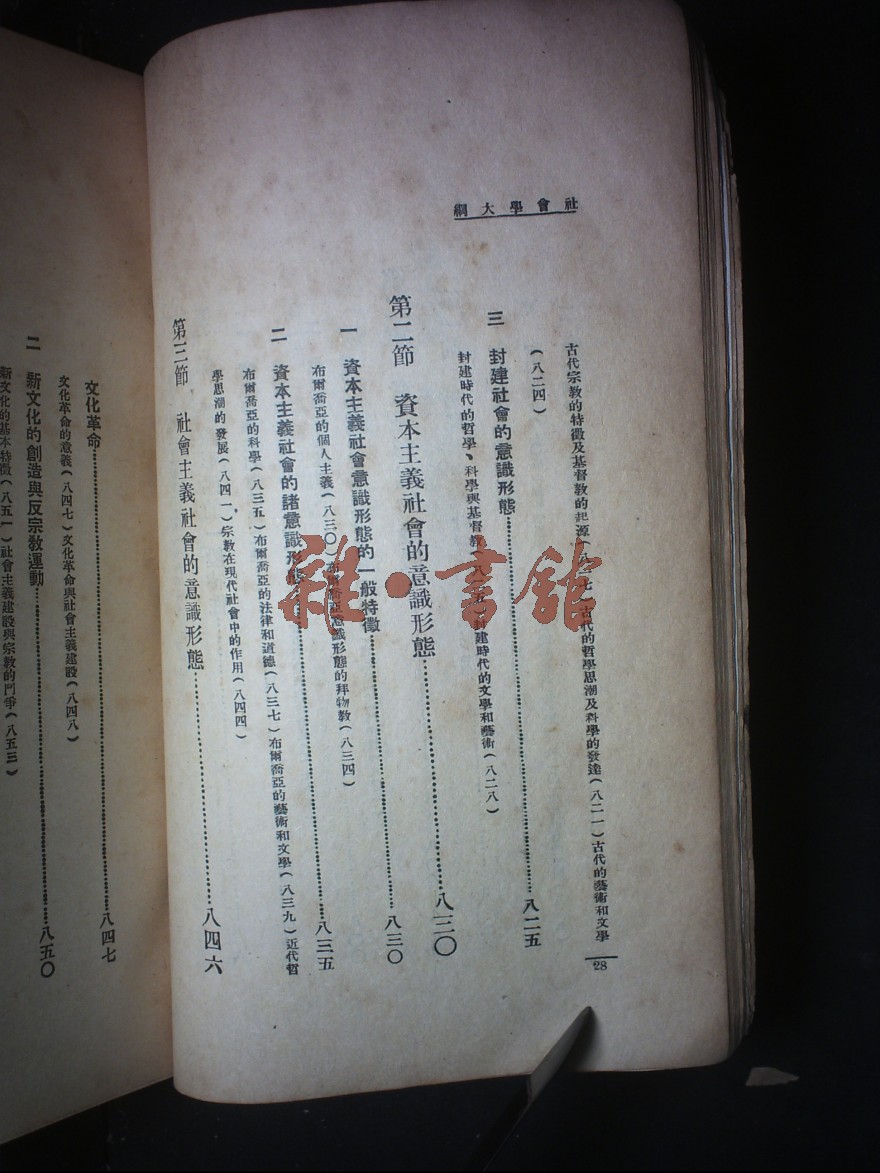 社會學大綱
28
古代宗教的特徵及基督教的起源(八一七)古代的哲學思潮及科學的發達(八二一)古代的藝術和文學
(八二四)
三 封建社會的意識形態……八二五
封建時代的哲學、科學與基督教(八二五)封建時代的文學和藝術(八二八)
第二節 資本主義社會的意識形態……八三〇
一 資本主義社會意識形態的一般特徵……八三〇
布爾喬亞的個人主義(八三〇)布爾喬亞意識形態的拜物教(八三四)
二 資本主義社會的諸意識形態……八三五
布爾喬亞的科學(八三五)布爾喬亞的法律和道德(八三七)布爾喬亞的藝術和文學(八三九)近代哲
學思潮的發展(八四一)宗教在現代社會中的作用(八四四)
第三節 社會主義社會的意識形態……八四六
文化革命……八四七
文化革命的意義(八四七)文化革命與社會主義建設(八四八)
二 新文化的創造與反宗教運動……八五〇
新文化的基本特徵(八五一)社會主義建設與宗教的鬥爭(八五三)
雜·書館